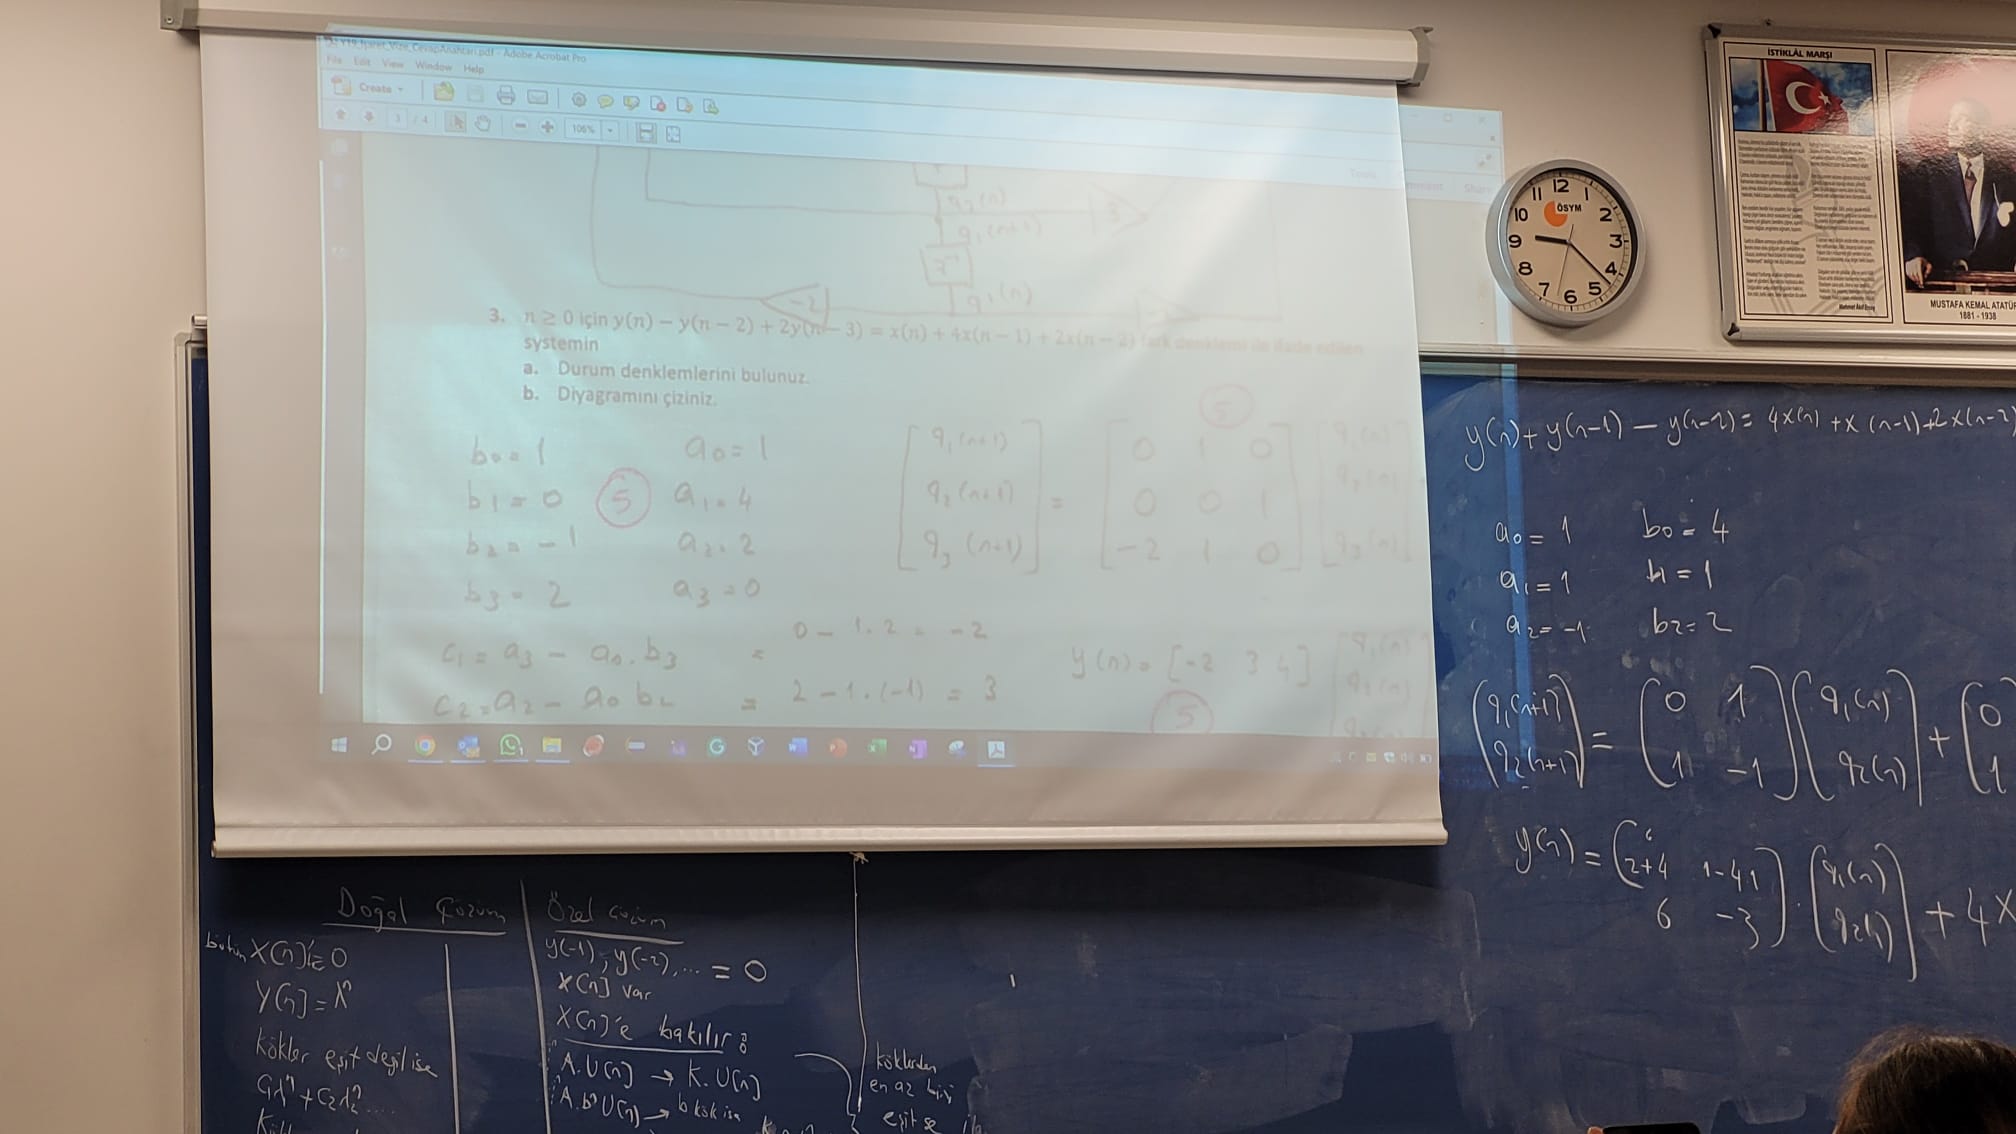 Y19_İşaret_Vize_CevapAnahtarı.pdf - Adobe Acrobat Pro
File Edit View Window Help
Create
3 / 4
106%
Tools
Share
q2(n)
q1(n+1)
q1(n)
-2
3. n ≥ 0 için y(n) − y(n − 2) + 2y(n − 3) = x(n) + 4x(n − 1) + 2x(n − 2) fark denklemi ile ifade edilen
systemin
a. Durum denklemlerini bulunuz.
b. Diyagramını çiziniz.
b0 = 1 a0 = 1
b1 = 0 a1 = 4
b2 = -1 a2 = 2
b3 = 2 a3 = 0
5
c1 = a3 - a0.b3 = 0 - 1.2 = -2
c2 = a2 - a0 b2 = 2 - 1.(-1) = 3
5
[q1(n+1)] = [0 1 0] [q1(n)]
[q2(n+1)] [0 0 1] [q2(n)]
[q3(n+1)] [-2 1 0] [q3(n)]
y(n) = [-2 3 4] [q1(n)]
[q2(n)]
5
İSTİKLÂL MARŞI
MUSTAFA KEMAL ATATÜR
1881 - 1938
ÖSYM
12 1 2 3 4 5 6 7 8 9 10 11
y(n) + y(n-1) - y(n-2) = 4x(n) + x(n-1) + 2x(n-2)
a0 = 1 b0 = 4
a1 = 1 b1 = 1
a2 = -1 b2 = 2
(q1(n+1)) = (0 1) (q1(n)) + (0
(q2(n+1)) (1 -1) (q2(n)) (1
y(n) = (2+4 1-4.1) . (q1(n)) + 4x
6 -3 (q2(n))
Doğal Çözüm
bütün X[n]'=0
Y[n] = λⁿ
kökler eşit değilse
C1λ1ⁿ + C2λ2ⁿ ....
Özel Çözüm
y(-1), y(-2), ... = 0
X[n] var
X[n]'e bakılır:
A.U[n] → K.U[n]
A.bⁿU[n] → b kök ise
köklerden
en az biri
eşitse